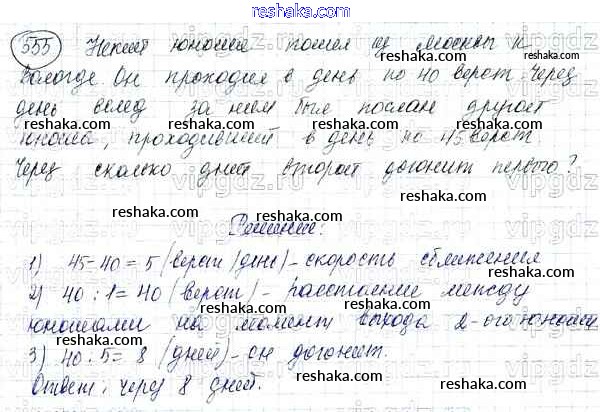 reshaka.com
555 Некий юноша пошел из Москвы к
Вологде. Он проходил в день по 40 верст. Через
день вслед за ним был послан другой
юноша, проходивший в день по 45 верст.
Через сколько дней второй догонит первого?
Решение:
1) 45-40=5 (верст/день) - скорость сближения
2) 40:1=40 (верст) - расстояние между
юношами на момент выхода 2-ого юноши
3) 40:5=8 (дней) - он догонит.
Ответ: через 8 дней.